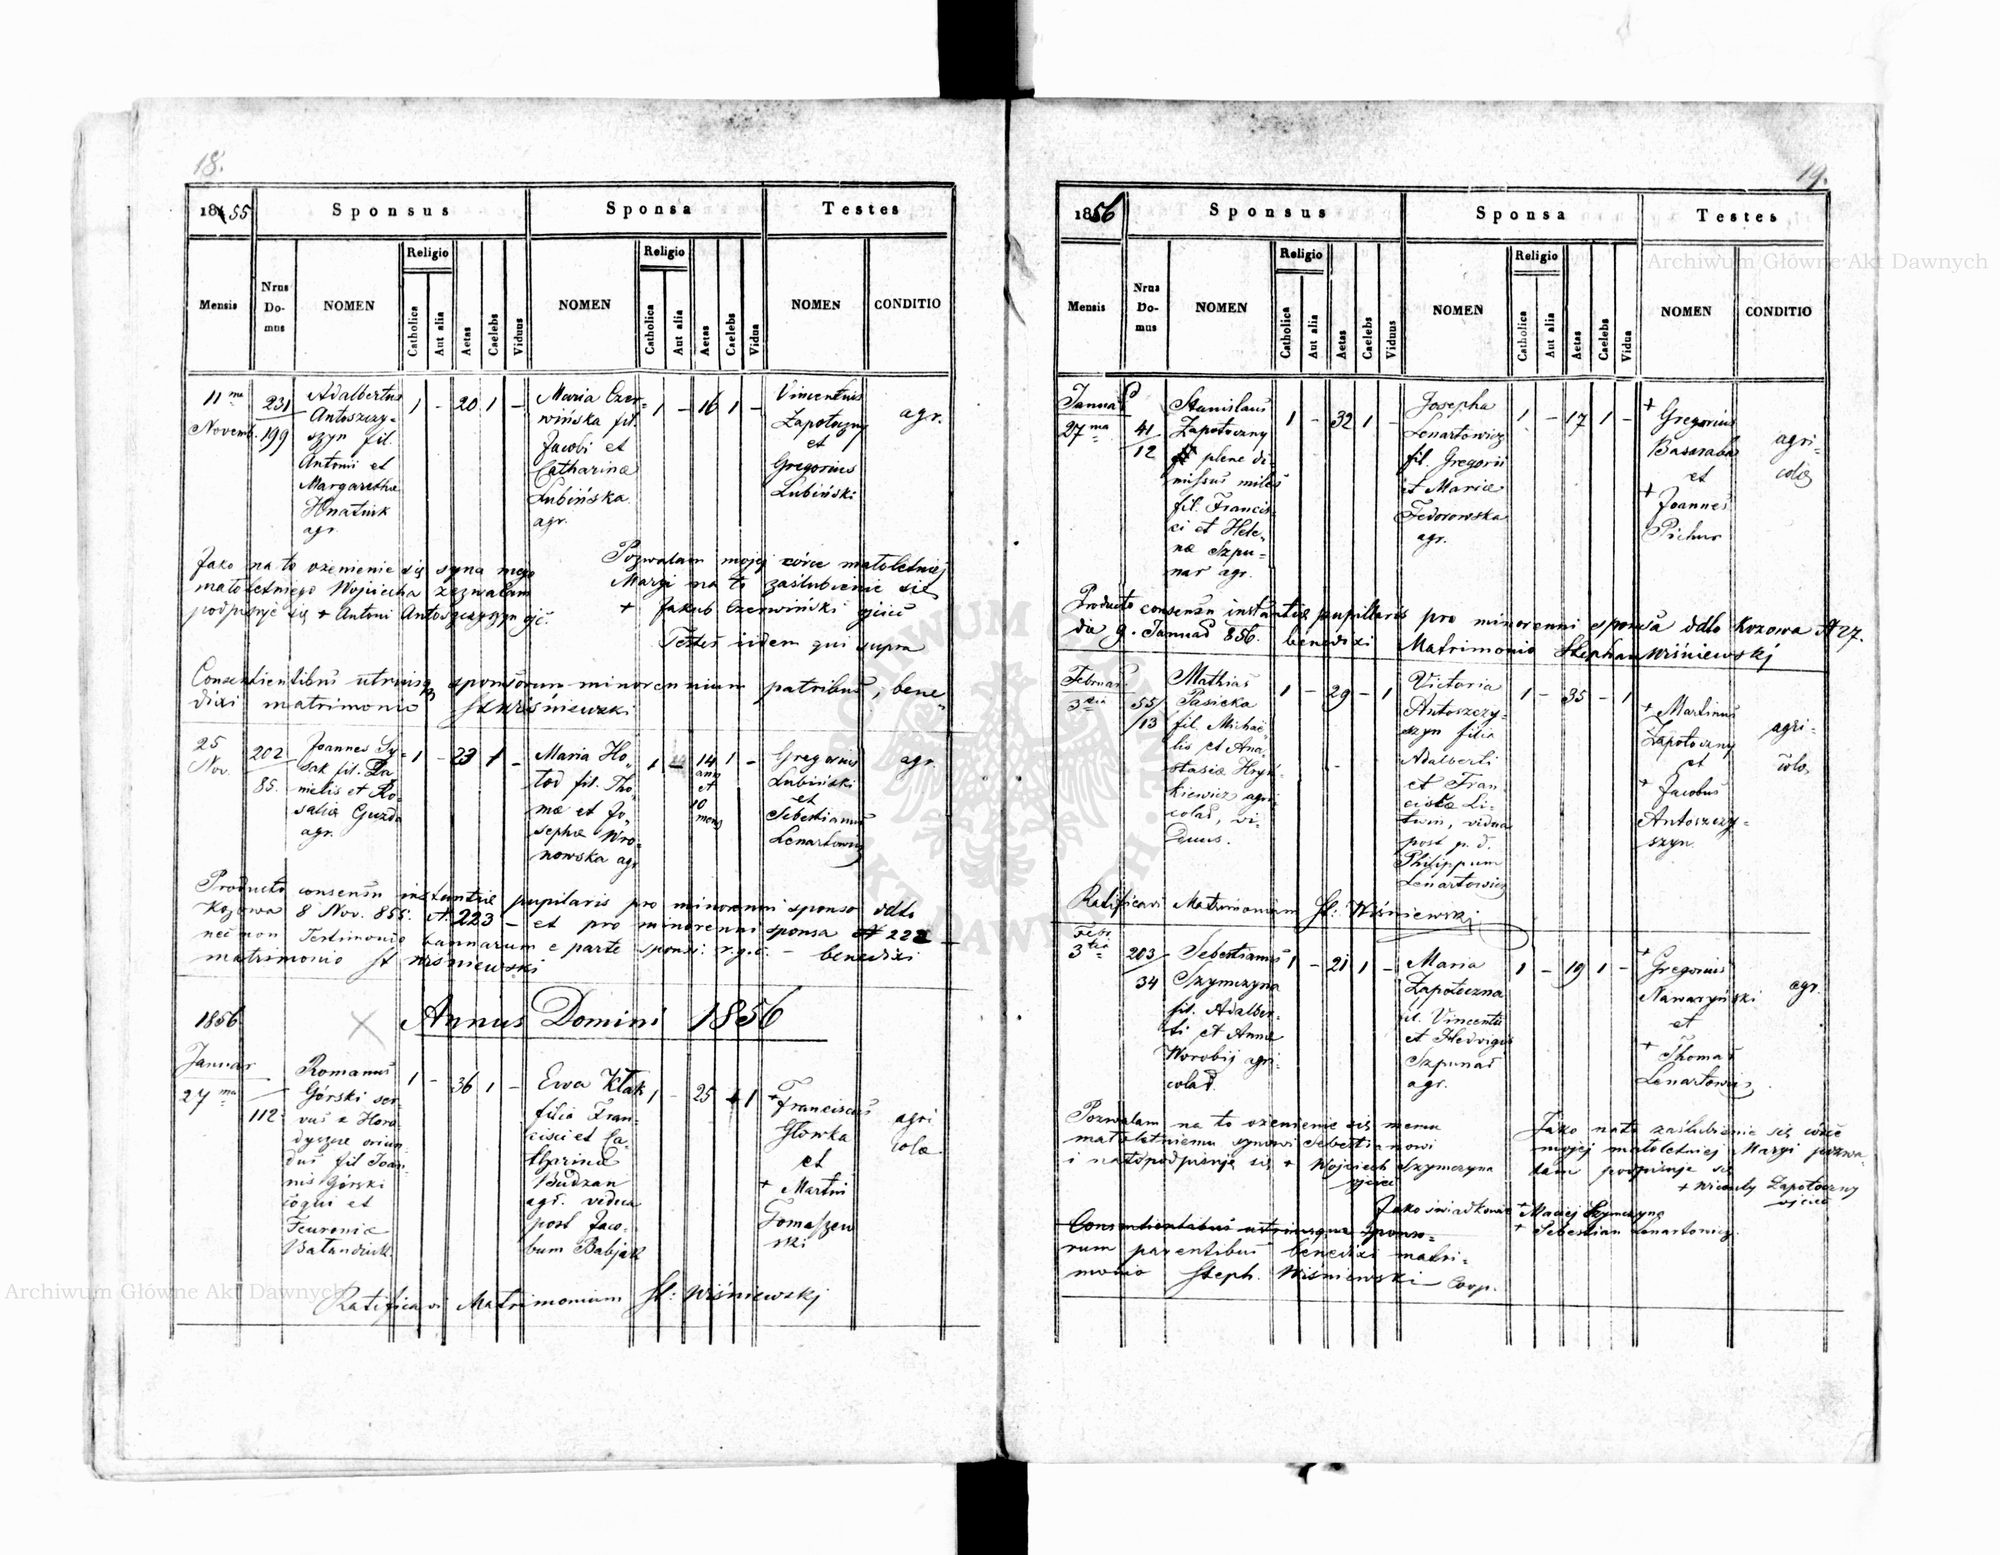 18.
1855 Sponsus Sponsa Testes
Mensis Nrus Domus NOMEN Religio Catholica Aut alia Aetas Caelebs Viduus NOMEN Religio Catholica Aut alia Aetas Caelebs Vidua NOMEN CONDITIO
11 ma
Novemb.
231
199
Adalbertus
Antoszczy-
szyn fil.
Antonii et
Margaretha
Hnatiuk
agr.
1 - 20 1 -
Maria Czer-
wińska fil.
Jacobi et
Catharina
Lubińska
agr.
1 - 16 1 -
Vincentius
Zapotoczny
et
Gregorius
Lubiński
agr.
Jako na to ozenienie się syna mego
małoletniego Wojciecha zezwalam
podpisuje się + Antoni Antoszczyszyn ojć.
Pozwalam mojej córce małoletniej
Maryi na to zaślubienie się
+ Jakub Czerwiński ojciec
Testes iidem qui supra
Consentientibus utriusq sponsorum minorennium patribus, bene
dixi matrimonio St Wiśniewski
25
Nov.
202
85.
Joannes Sy-
sak fil. Da
nielis et Ro-
salia Guzda
agr.
1 - 23 1 -
Maria Ho-
tod fil. Tho-
mæ et Jo-
sepha Wro-
nowska agr.
1 - 14 ann et 10 mens 1 -
Gregorius
Lubiński
et
Sebestianus
Lenartowicz
agr.
Producto consensu instantiæ pupilaris pro minorenni sponso ddto
Kozowa 8 Nov. 855. N. 223 - et pro minorenni sponsa N 222
nec non Testimonio bannorum e parte sponsi r.g.c. - benedixi
matrimonio St Wiśniewski
1856 Annus Domini 1856
Januar
27 ma
112
Romanus
Górski ser-
vus e Horo
dyszcze oriun
dus fil Joan
nis Górski
coqui et
Feuronia
Bałandiuk
1 - 36 1 -
Ewa Kłak
filia Fran-
cisci et Ca-
tharina
Budzan
agr. vidua
post Jaco-
bum Babjak
1 - 25 1
+ Franciscus
Głowka
et
+ Martin
Tomaszew
ski
agri
cola
Ratificavi Matrimonium St: Wiśniewski
19.
1856 Sponsus Sponsa Testes
Mensis Nrus Domus NOMEN Religio Catholica Aut alia Aetas Caelebs Viduus NOMEN Religio Catholica Aut alia Aetas Caelebs Vidua NOMEN CONDITIO
Januar
27 ma
41
12
Stanislaus
Zapotoczny
plene di-
missus miles
fil. Francis-
ci et Hele-
næ Szpu-
nar agr.
1 - 32 1 -
Josepha
Lenartowicz
fil. Gregorii
et Maria
Fedorowska
agr.
1 - 17 1 -
+ Gregorius
Basaraba
et
+ Joannes
Pichur
agri-
colæ
Producto consensu instantiæ pupillaris pro minorenni sponsa ddto Kozowa N 27.
die 9. Januar 856. benedixi Matrimonio Stephan Wiśniewski
Februar
3 tia
55
13
Mathias
Pasieka
fil. Michae
lis et Ana
stasia Hryń
kiewicz agri
colas, vi-
duus.
1 - 29 - 1
Victoria
Antoszczy-
szyn filia
Adalberti
et Fran
ciska Li-
twin, vidua
post p. d.
Philippum
Lenartowicz
1 - 35 - 1
+ Martinus
Zapotoczny
et
+ Jacobus
Antoszczy-
szyn.
agri-
colæ
Ratificavi Matrimonium St: Wiśniewski
Febr
3 tia
203
34
Sebestianus
Szymczyna
fil. Adalber-
ti et Anna
Worobij agri-
colas.
1 - 21 1 -
Maria
Zapotoczna
fil. Vincentii
et Hedvigis
Szpunar
agr.
1 - 19 1 -
+ Gregorius
Nawaryński
et
+ Thomas
Lenartowicz
agr.
Pozwalam na to ożenienie się memu
małoletniemu synowi Sebestianowi
i na to podpisuję się + Wojciech Szymczyna
ojciec
Jako nato zaślubienie się córce
mojej małoletniej Maryi pozwa-
lam podpisuje się
+ Wicenty Zapotoczny
ojciec
Jako świadkowie + Maciej Szymczyna
+ Sebestian Lenartowicz.
Consentientibus utriusque sponso-
rum parentibus benedixi matri-
monio Steph. Wiśniewski Coop.
Archiwum Główne Akt Dawnych
Archiwum Główne Akt Dawnych